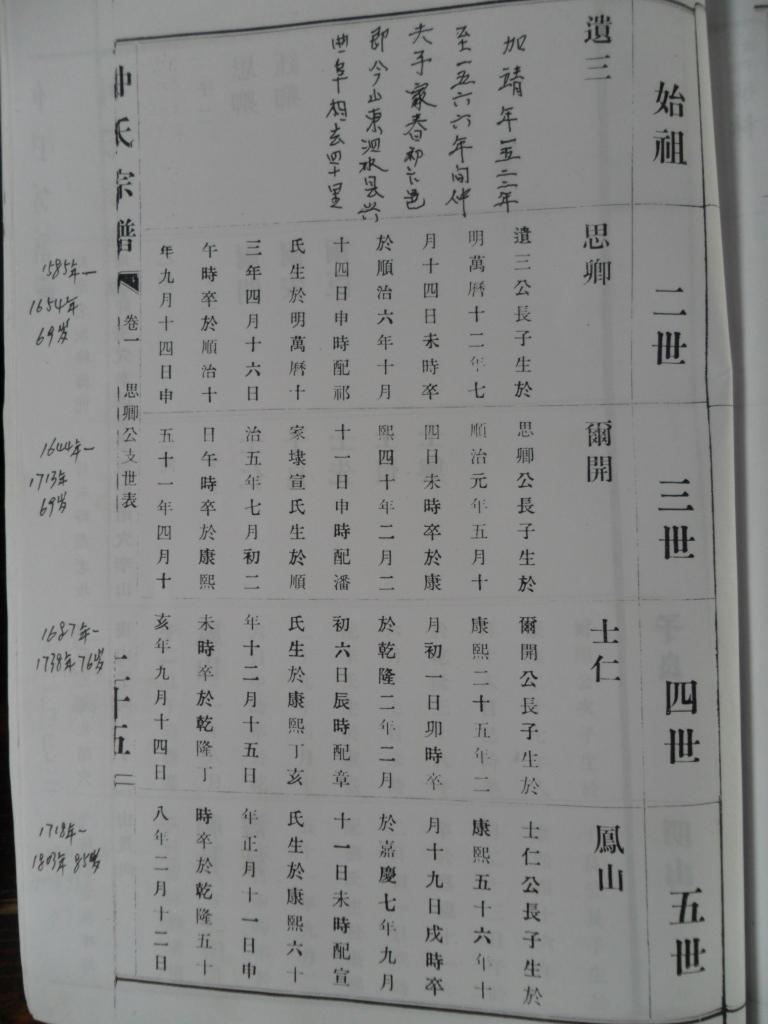 始祖
遺三
加靖年一五二二年
至一五六六年间仲
夫子家春初卞邑
即今山東泗水县兴
曲阜相去四十里
二世
思卿
遺三公長子生於
明萬曆十二年七
月十四日未時卒
於順治六年十月
十四日申時配祁
氏生於明萬曆十
三年四月十六日
午時卒於順治十
年九月十四日申
三世
爾開
思卿公長子生於
順治元年五月十
四日未時卒於康
熙四十年二月二
十一日申時配潘
家埭宣氏生於順
治五年七月初二
日午時卒於康熙
五十一年四月十
四世
士仁
爾開公長子生於
康熙二十五年二
月初一日卯時卒
於乾隆二年二月
初六日辰時配章
氏生於康熙丁亥
年十二月十五日
未時卒於乾隆丁
亥年九月十四日
五世
鳳山
士仁公長子生於
康熙五十六年十
月十九日戌時卒
於嘉慶七年九月
十一日未時配宣
氏生於康熙六十
年正月十一日申
時卒於乾隆五十
八年二月十二日
仲氏宗譜
卷一
思卿公支世表
二十五
1585年—
1654年
69岁
1644年—
1713年
69岁
1687年—
1738年76岁
1718年—
1803年85岁